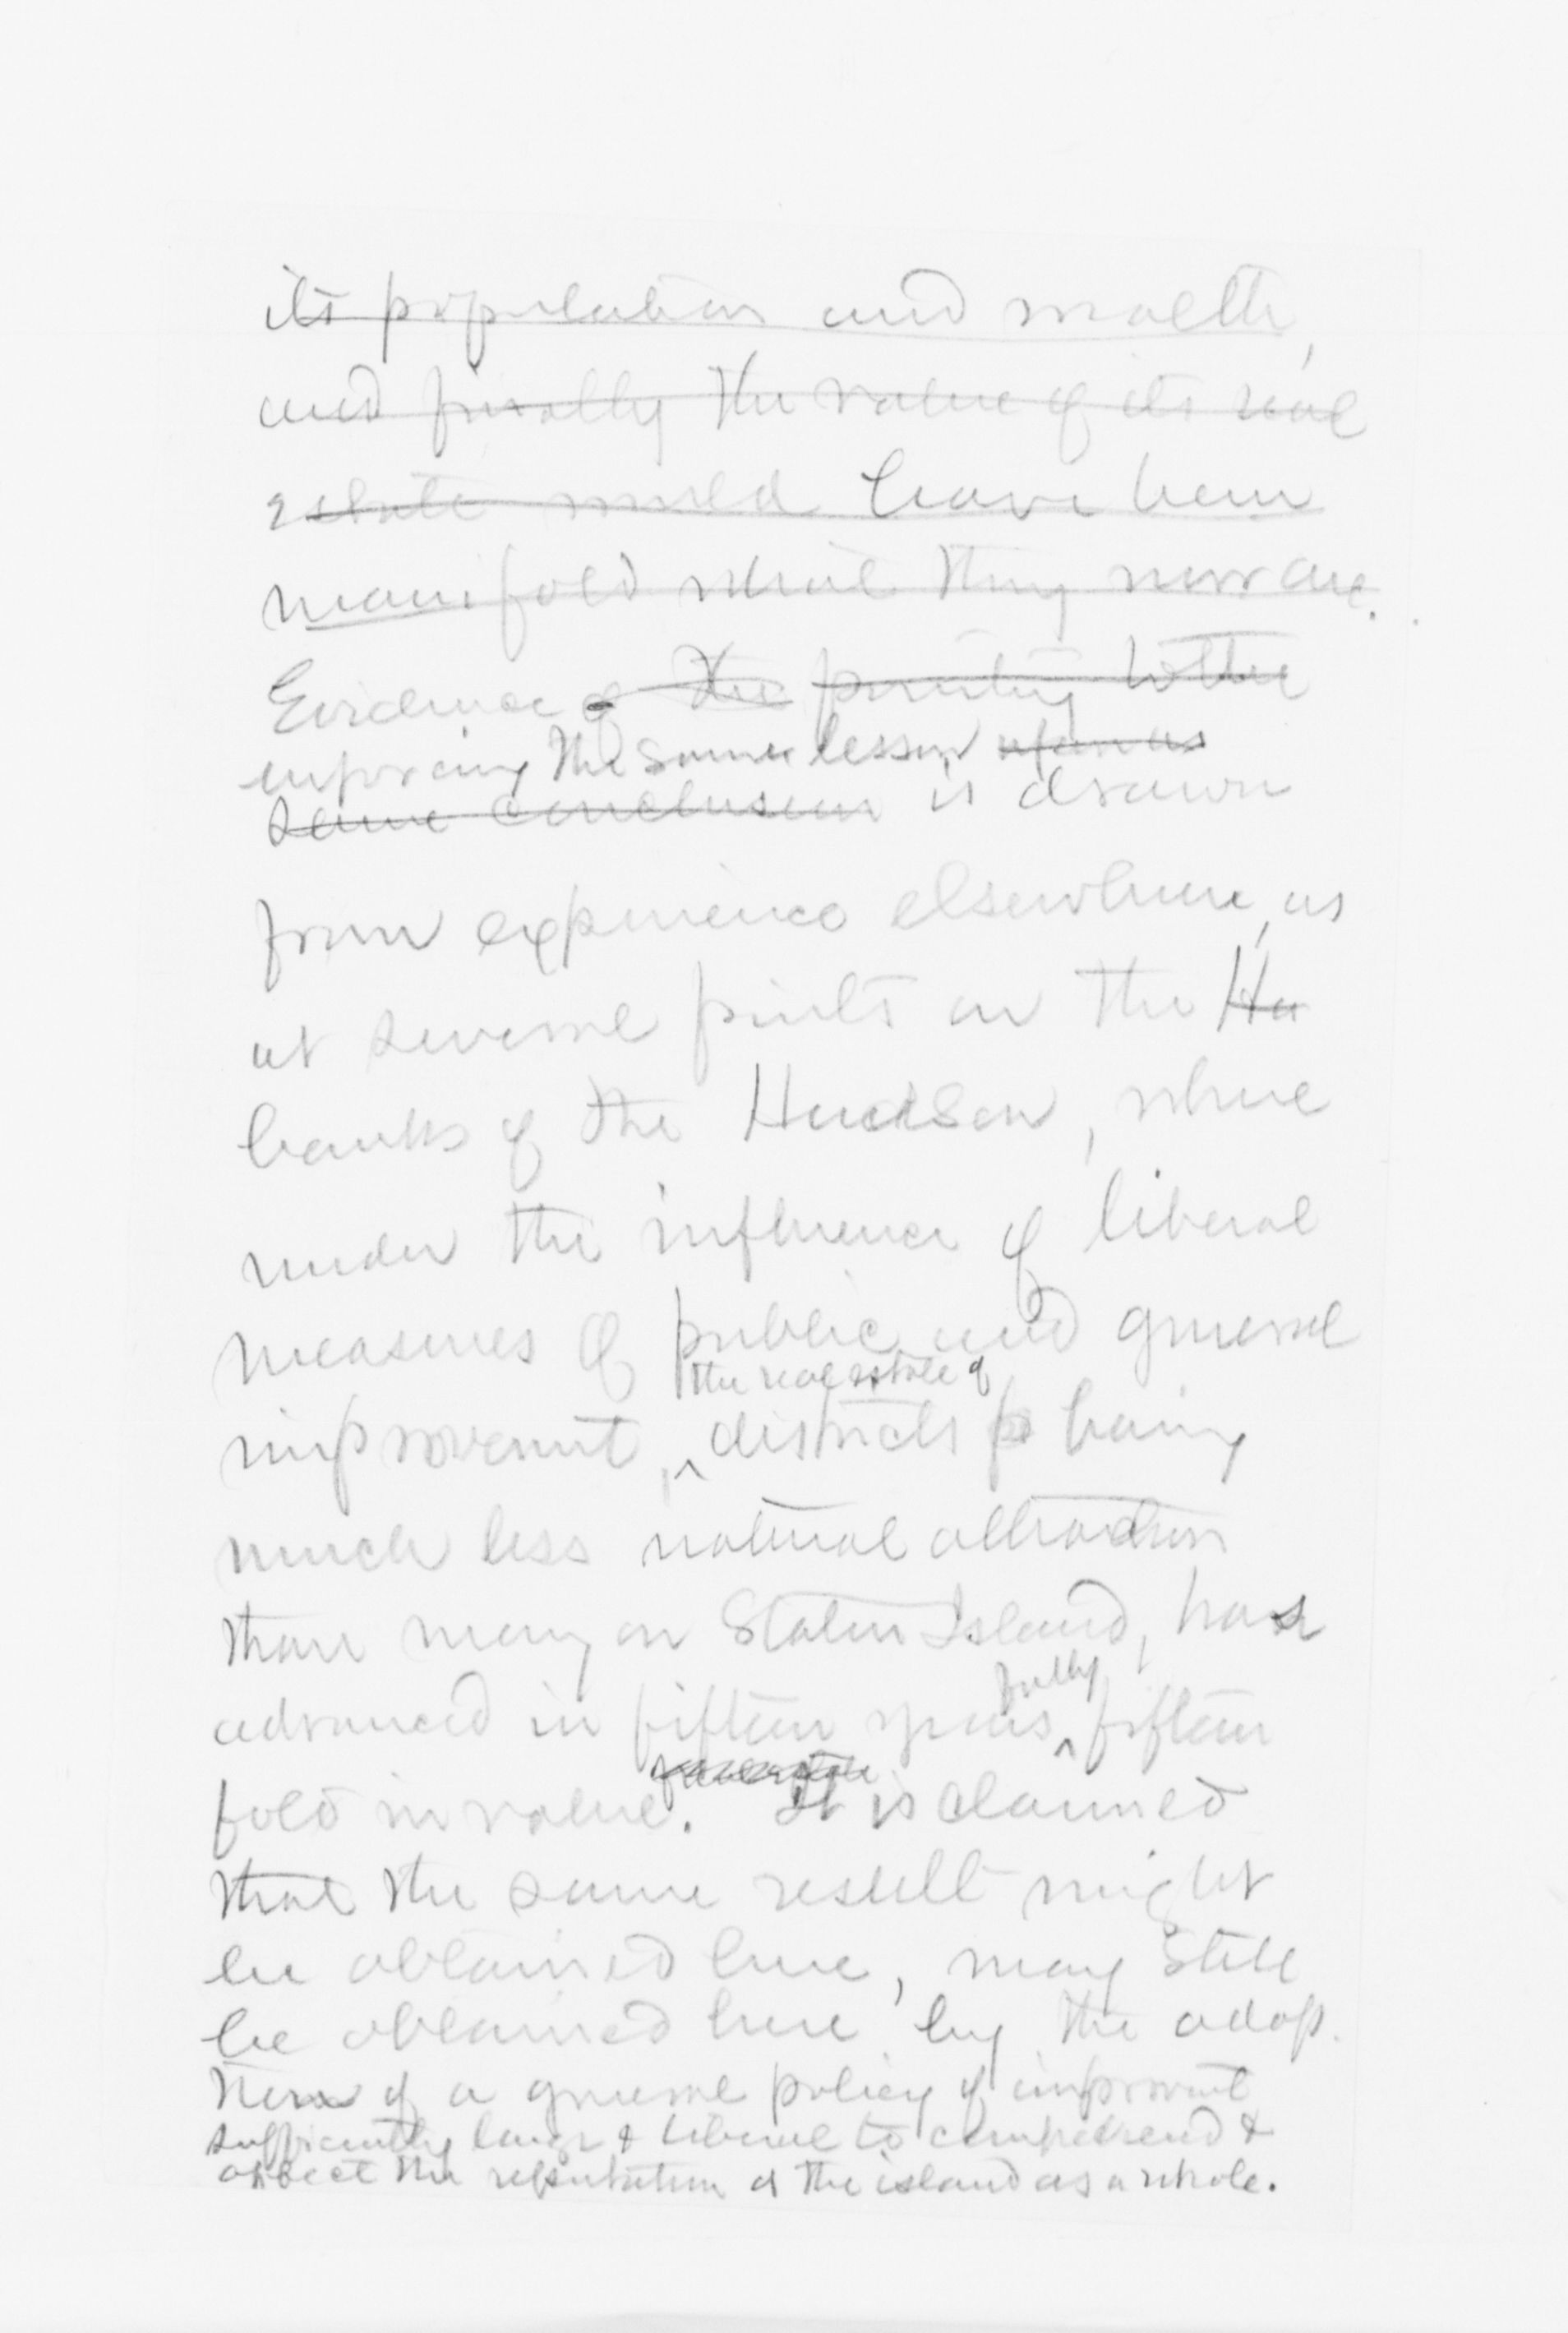 its population and wealth,
and finally the value of its real
estate would have been
manifold what they now are.
Evidence of the pointing to the
enforcing the same lesson upon us
same conclusion is drawn
from experience elsewhere, as
at several points on the Hu
banks of the Hudson, where
under the influence of liberal
measures of public and general
the real estate of
improvement, ^ districts having
much less natural attraction
than many on Staten Island, has
fully
advanced in fifteen years ^ fifteen
fold in value. It is claimed
that the same result might
be obtained here, may still
be obtained here by the adop-
tion of a general policy of improvement
sufficiently large & liberal to comprehend &
affect the reputation of the island as a whole.